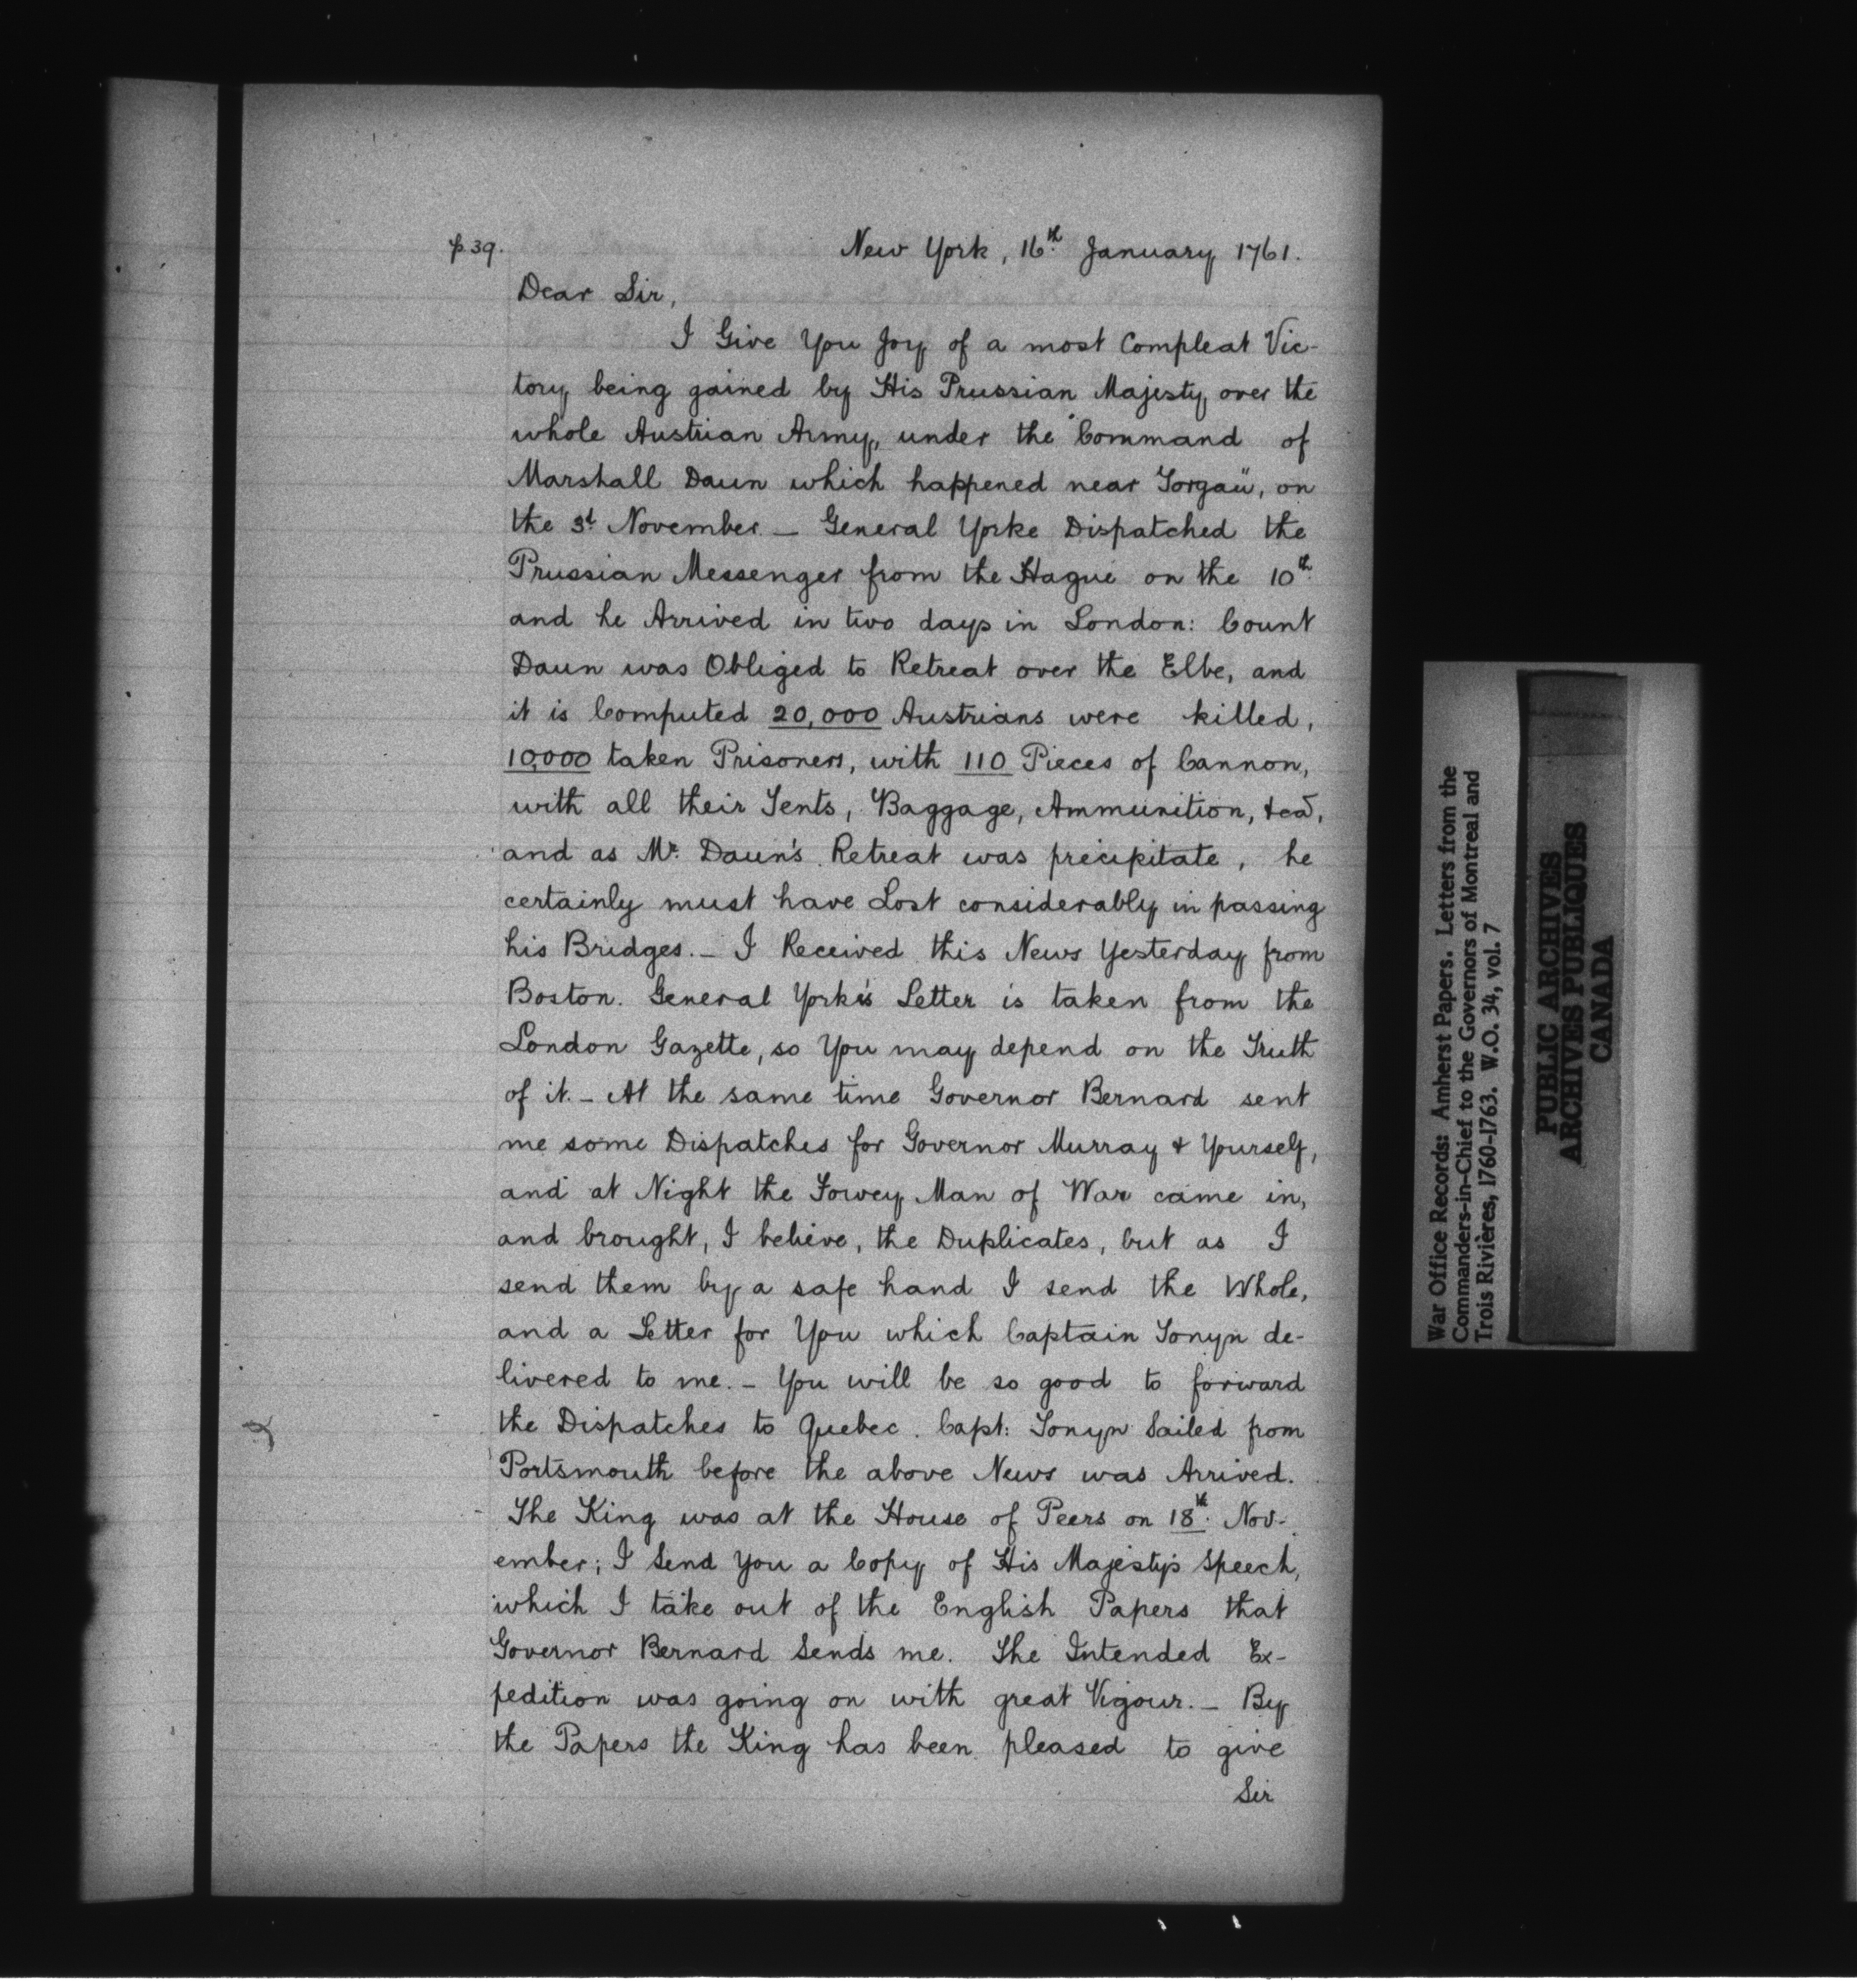 p. 39.
New York, 16th January 1761.
Dear Sir,
I Give You Joy of a most Compleat Vic-
tory being gained by His Prussian Majesty over the
whole Austrian Army, under the Command of
Marshall Daun which happened near Torgaü, on
the 3d November. — General Yorke Dispatched the
Prussian Messenger from the Hague on the 10th.
and he Arrived in two days in London: Count
Daun was Obliged to Retreat over the Elbe, and
it is Computed 20,000 Austrians were killed,
10,000 taken Prisoners, with 110 Pieces of Cannon,
with all their Tents, Baggage, Ammunition, &ca,
and as Mr. Daun's Retreat was precipitate, he
certainly must have Lost considerably in passing
his Bridges. — I Received this News Yesterday from
Boston. General Yorke's Letter is taken from the
London Gazette, so You may depend on the Truth
of it. — At the same time Governor Bernard sent
me some Dispatches for Governor Murray & Yourself,
and at Night the Fowey Man of War came in,
and brought, I believe, the Duplicates, but as I
send them by a safe hand I send the Whole,
and a Letter for You which Captain Tonyn de-
livered to me. — You will be so good to forward
the Dispatches to Quebec. Capt: Tonyn Sailed from
Portsmouth before the above News was Arrived.
The King was at the House of Peers on 18th. Nov-
ember; I Send You a Copy of His Majesty's Speech,
which I take out of the English Papers that
Governor Bernard Sends me. The Intended Ex-
pedition was going on with great Vigour. — By
the Papers the King has been pleased to give
Sir
War Office Records: Amherst Papers. Letters from the
Commanders-in-Chief to the Governors of Montreal and
Trois Rivières, 1760-1763. W.O. 34, vol. 7
PUBLIC ARCHIVES
ARCHIVES PUBLIQUES
CANADA